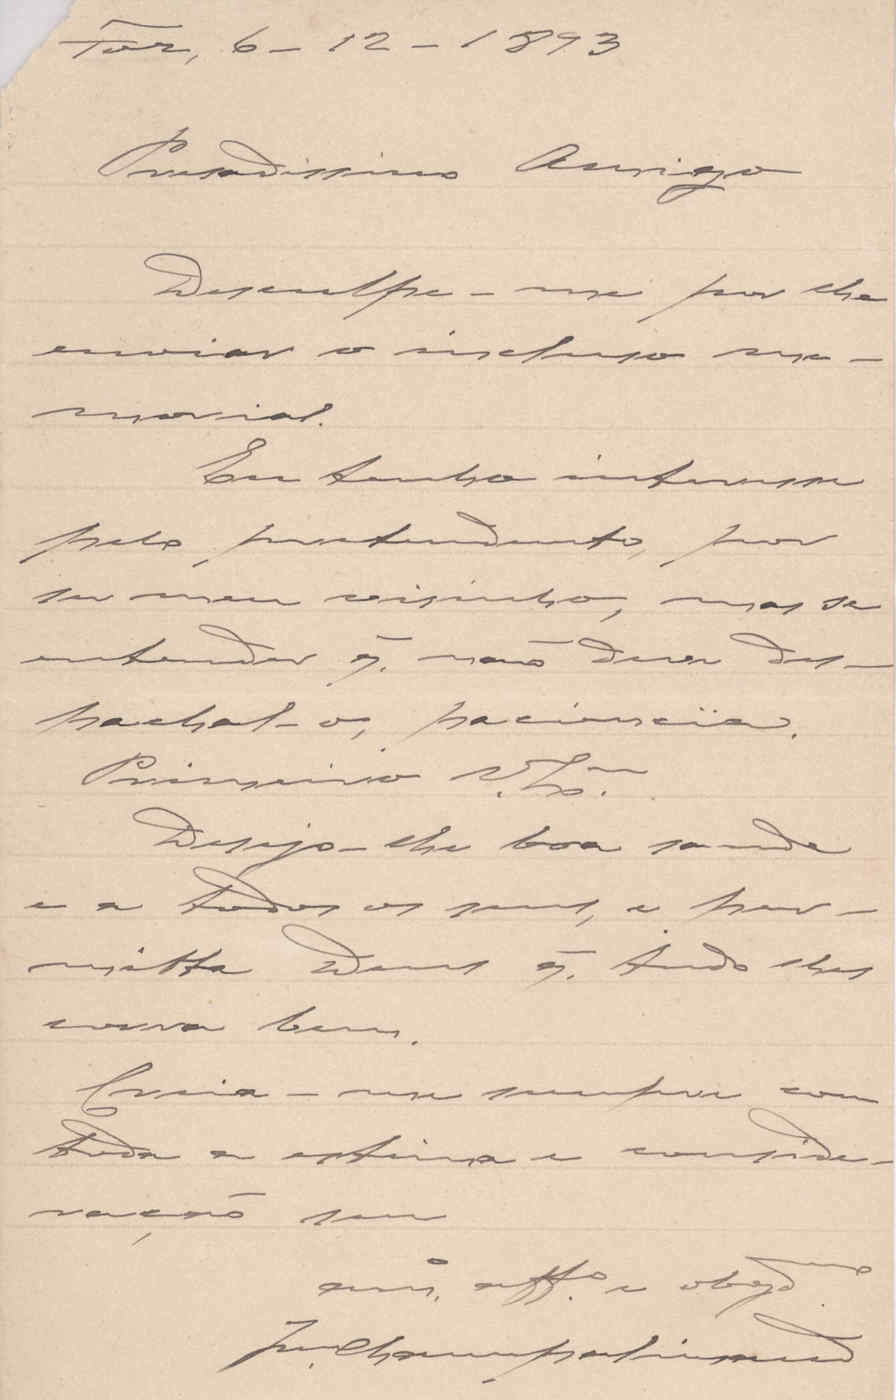 For, 6-12-1893
Presadissimo Amigo
Desculpe-me por lhe
enviar o incluso me-
morial.
Eu tenho interesse
pelo pretendente, por
ser meu visinho, mas se
entender q. não deve des-
pachal-o, paciencia.
Primeiro V. Exª.
Desejo-lhe boa saude
e a todos os seus, e per-
mitta Deus q. tudo lhes
corra bem.
Creia-me sempre com
toda a estima e conside-
ração seu
amº. affº. e obgdmo.